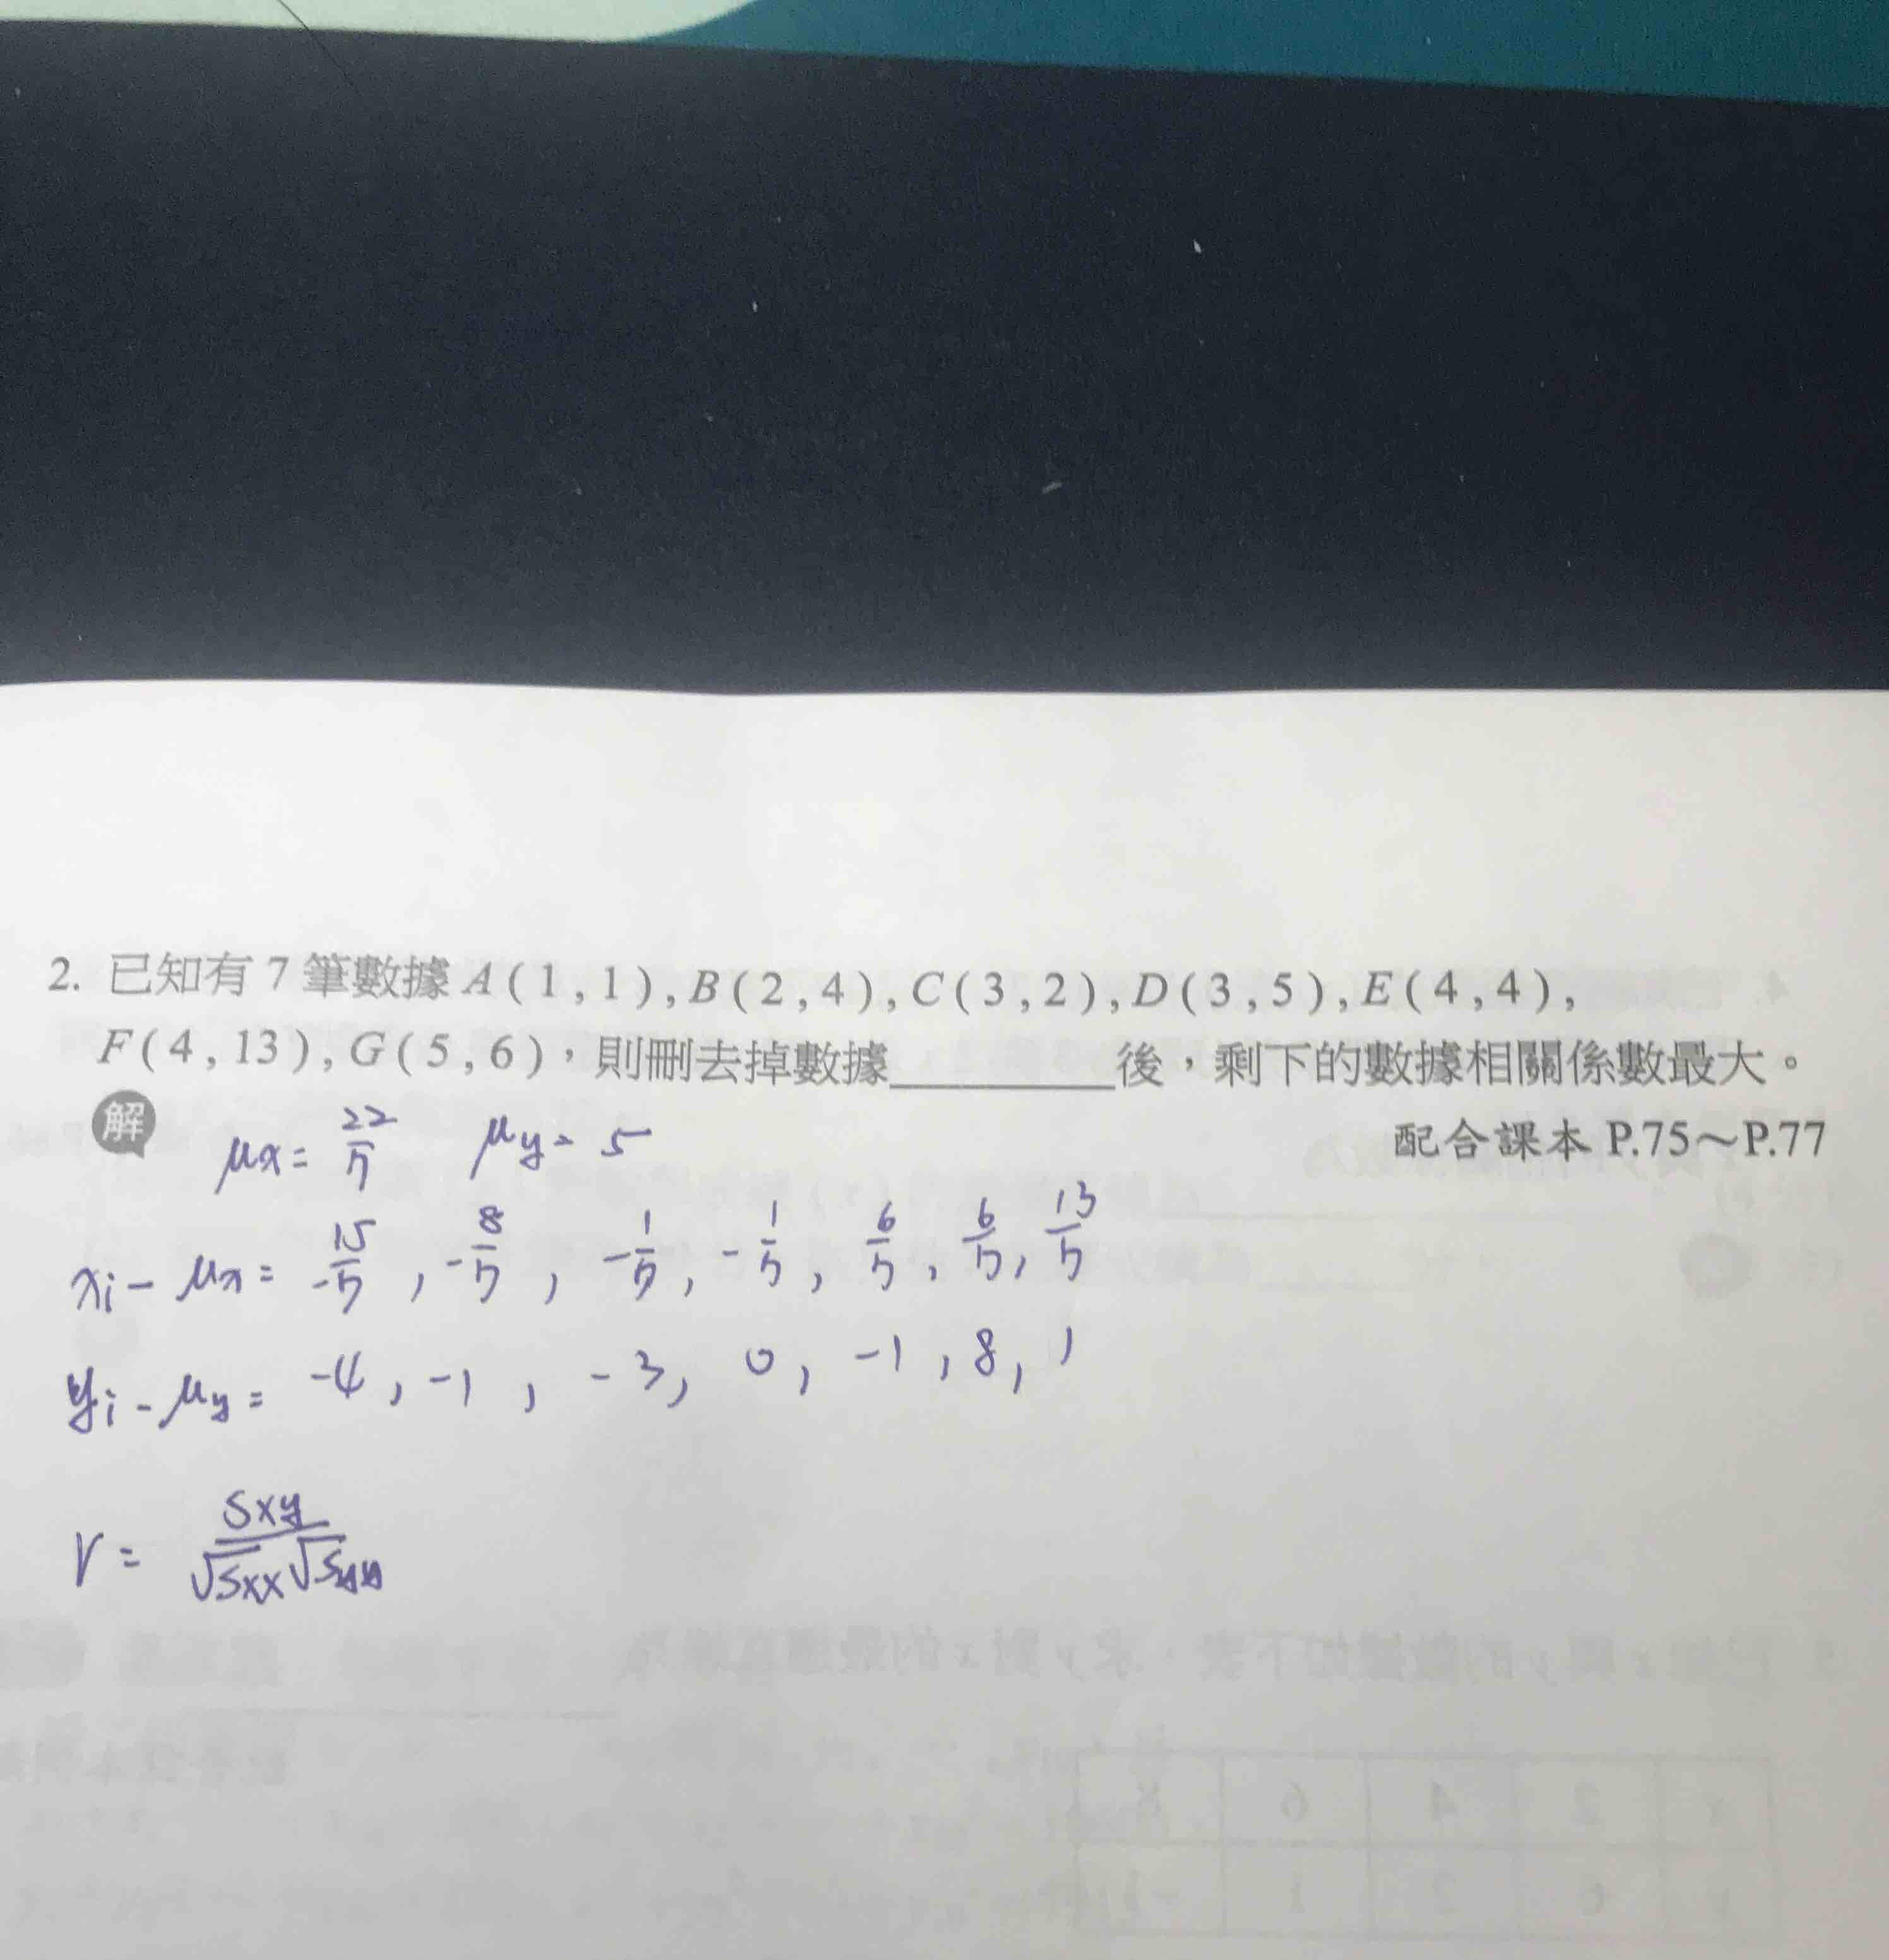 2. 已知有 7 筆數據 A ( 1 , 1 ) , B ( 2 , 4 ) , C ( 3 , 2 ) , D ( 3 , 5 ) , E ( 4 , 4 ) ,
F ( 4 , 13 ) , G ( 5 , 6 ) ,則刪去掉數據________後,剩下的數據相關係數最大。
解
配合課本 P.75～P.77
μx = 22/7 μy = 5
xi - μx = -15/7 , -8/7 , -1/7 , -1/7 , 6/7 , 6/7 , 13/7
yi - μy = -4 , -1 , -3 , 0 , -1 , 8 , 1
r = Sxy/√Sxx √Syy